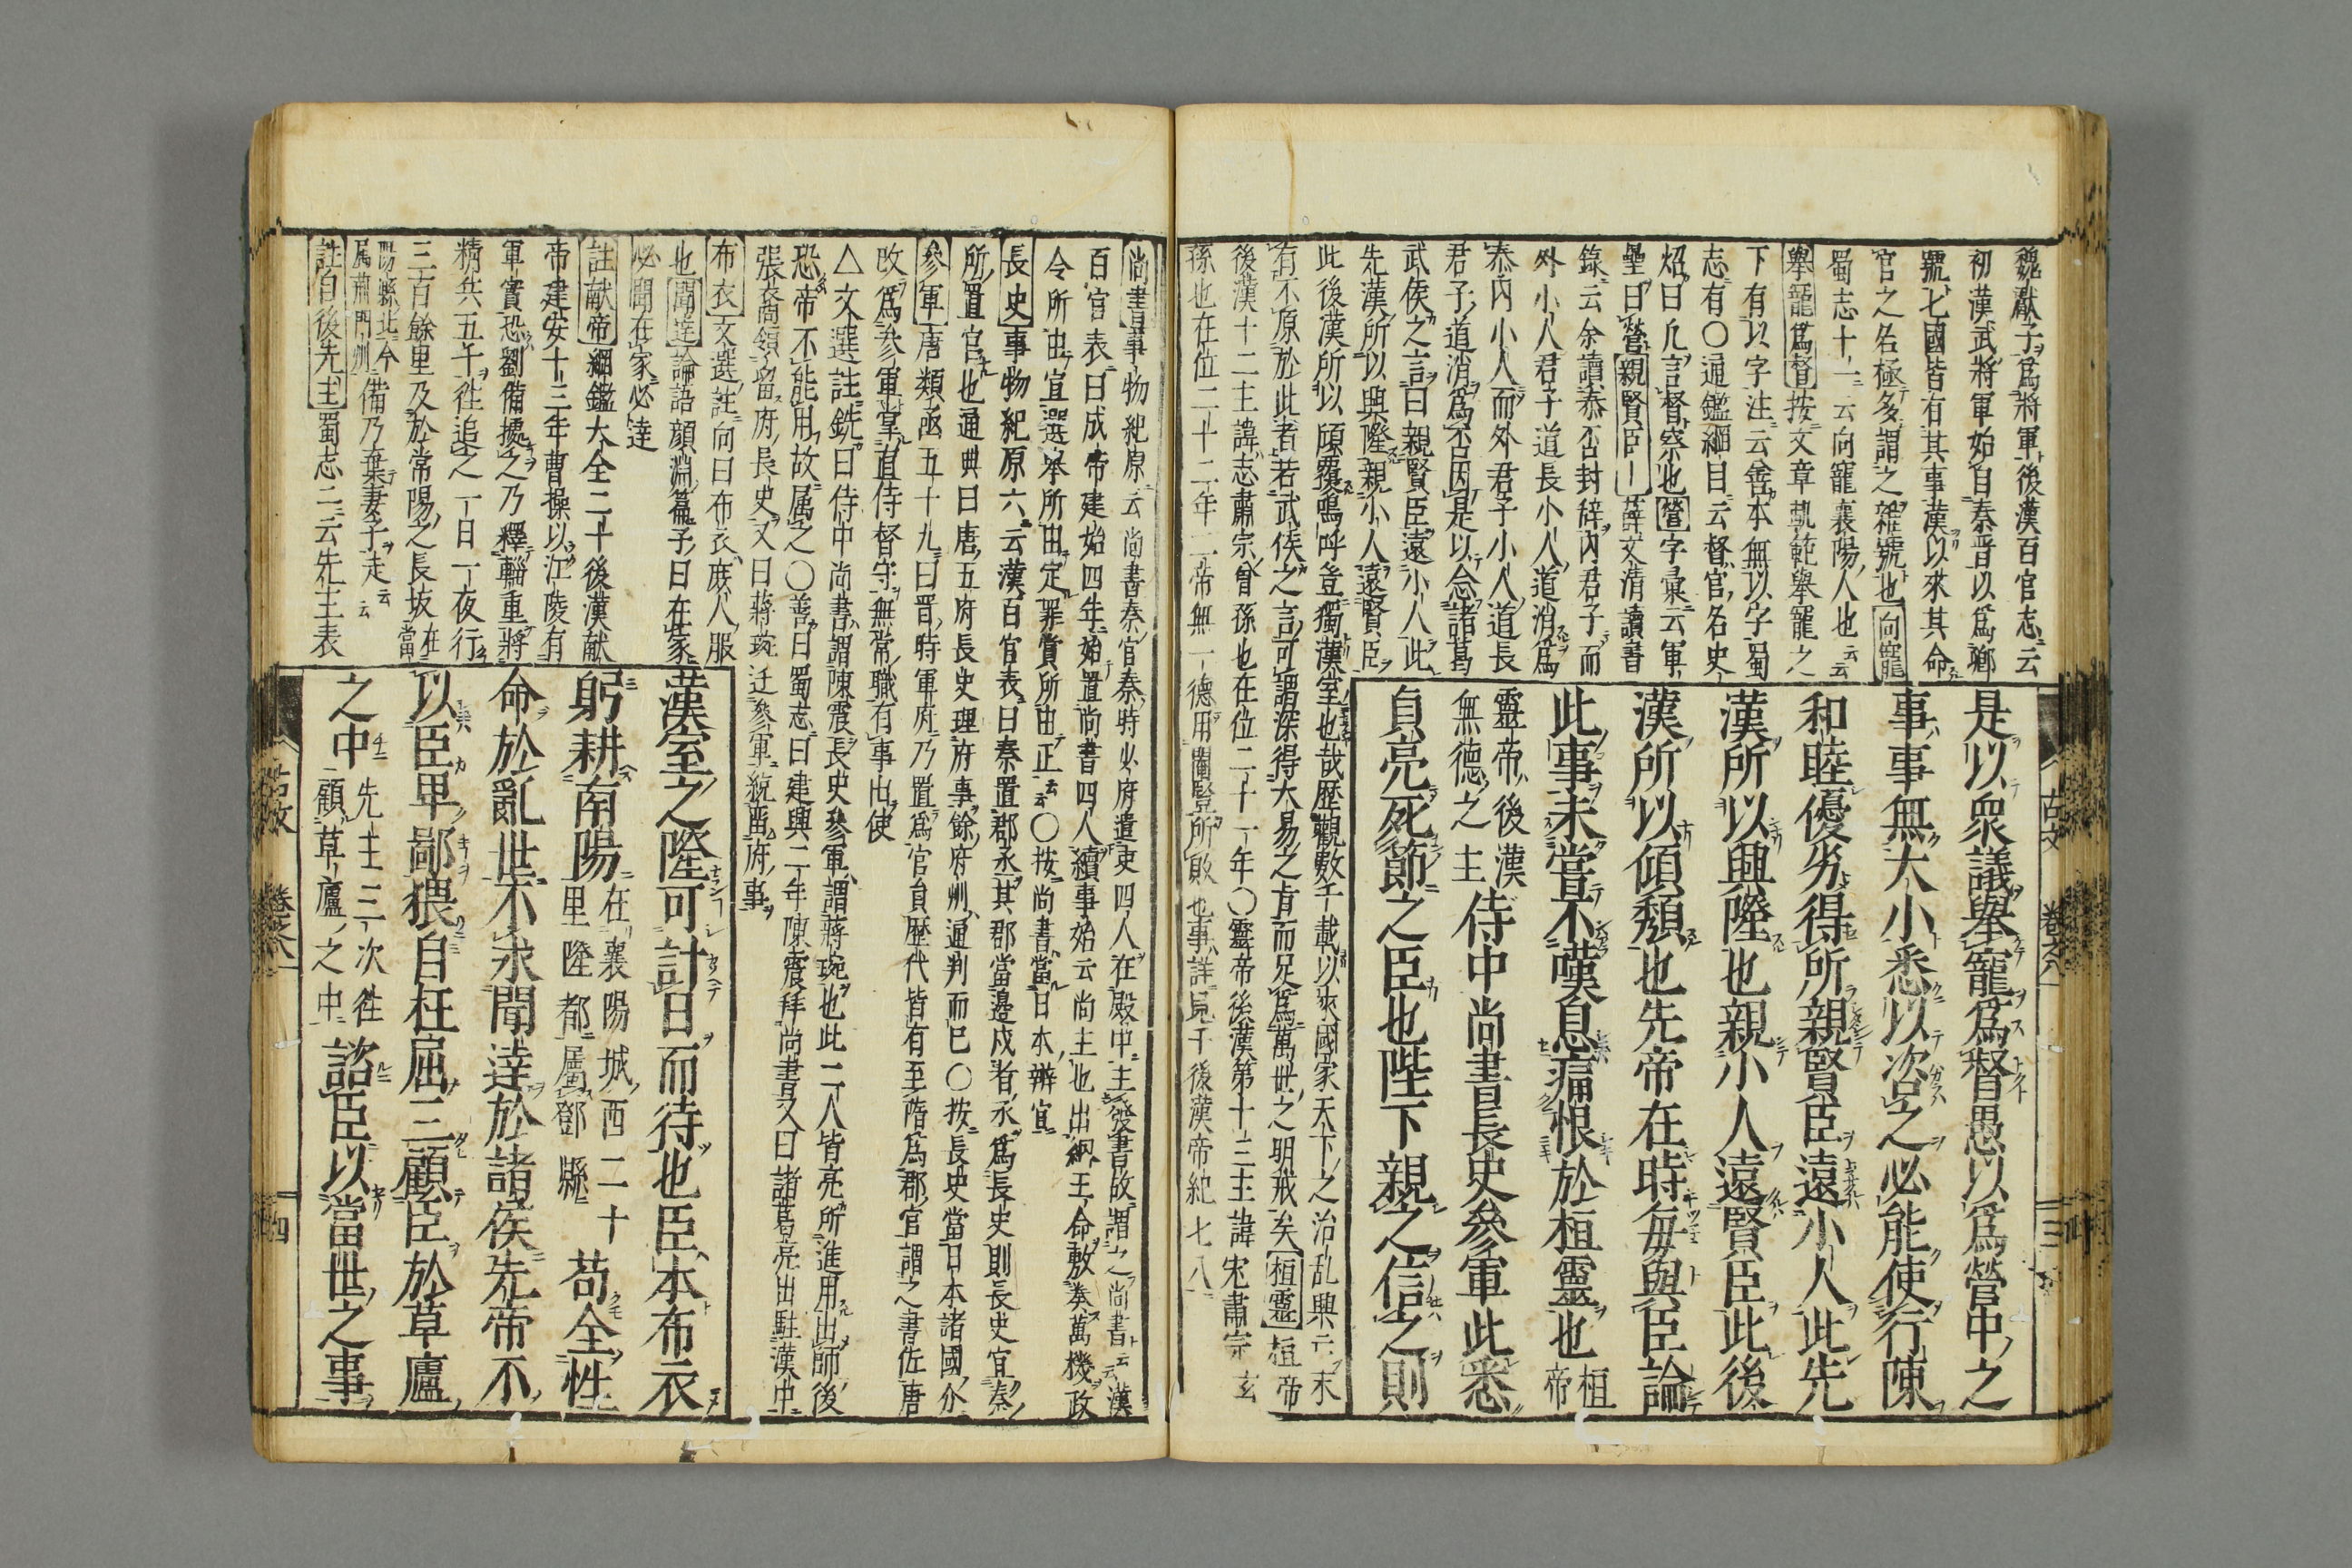 魏獻子爲將軍後漢百官志云
初漢武將軍始自秦晋以爲
號七國皆有其事漢以來其命
官之名極多謂之雜號也向寵
蜀志十一云向寵襄陽人也云云
舉寵爲督按文章軌範舉寵之
下有以字注云舊本無以字蜀
志有〇通鑑綱目云督官名史
炤曰凡言督察也營字彙云軍
壘曰營親賢臣薛文淸讀書
錄云余讀泰否封辞内君子而
外小人君子道長小人道消爲
泰内小人而外君子小人道長
君子道消爲否因是以念諸葛
武侯之言曰親賢臣遠小人此
先漢所以興隆親小人遠賢臣
此後漢所以傾覆嗚呼豈獨漢室也哉歴觀數千載以來國家天下之治乱興亡未
有不原於此者若武侯之言可謂深得大易之旨而足爲萬世之明戒矣桓靈桓帝
後漢十二主諱志肅宗曾孫也在位二十一年〇靈帝後漢第十三主諱宏肅宗玄
孫也在位二十二年二帝無一德用閹竪所敗也事詳見于後漢帝紀七八
是以衆議舉寵爲督愚以爲營中之
事事無大小悉以咨之必能使行陳
和睦優劣得所親賢臣遠小人此先
漢所以興隆也親小人遠賢臣此後
漢所以傾頹也先帝在時每與臣論
此事未嘗不嘆息痛恨於桓靈也桓帝
靈帝後漢無德之主侍中尚書長史參軍此悉
貞亮死節之臣也陛下親之信之則
古文 卷之八 三
尚書事物紀原云尚書秦官秦時少府遣吏四人在殿中主發書故謂之尚書云漢
百官表曰成帝建始四年始置尚書四人續事始云尚主也出納王命敷奏萬機政
令所由宣選舉所由定罪賞所由正云云〇按尚書當日本辨官
長史事物紀原六云漢百官表曰秦置郡丞其郡當邊戍者丞爲長史則長史官秦
所置官也通典曰唐五府長史理府事餘府州通判而已〇按長史當日本諸國介
參軍唐類函五十九曰晋時軍府乃置爲官員歴代皆有至隋爲郡官謂之書佐唐
改爲參軍掌直侍督守無常職有事出使
△文選註銑曰侍中尚書謂陳震長史參軍謂蔣琬也此二人皆亮所進用出師後
恐帝不能用故属之〇善曰蜀志曰建興二年陳震拜尚書又曰諸葛亮出駐漢中
張裔領留府長史又曰蔣琬迁參軍統畱府事
布衣文選註向曰布衣庶人服
也聞達論語顔淵篇子曰在家
必聞在家必達
註献帝綱鑑大全二十後漢献
帝建安十三年曹操以江陵有
軍實恐劉備據之乃釋輜重將
精兵五千徃追之一日一夜行
三百餘里及於常陽之長坂在當
陽縣北今属荊門州備乃棄妻子走云云
註自後先主蜀志二云先主表
漢室之隆可計日而待也臣本布衣
躬耕南陽在襄陽城西二十里隆都屬鄧縣苟全性
命於亂世不求聞達於諸侯先帝不
以臣卑鄙猥自枉屈三顧臣於草廬
之中先主三次徃顧草廬之中諮臣以當世之事
古文 卷之八 四